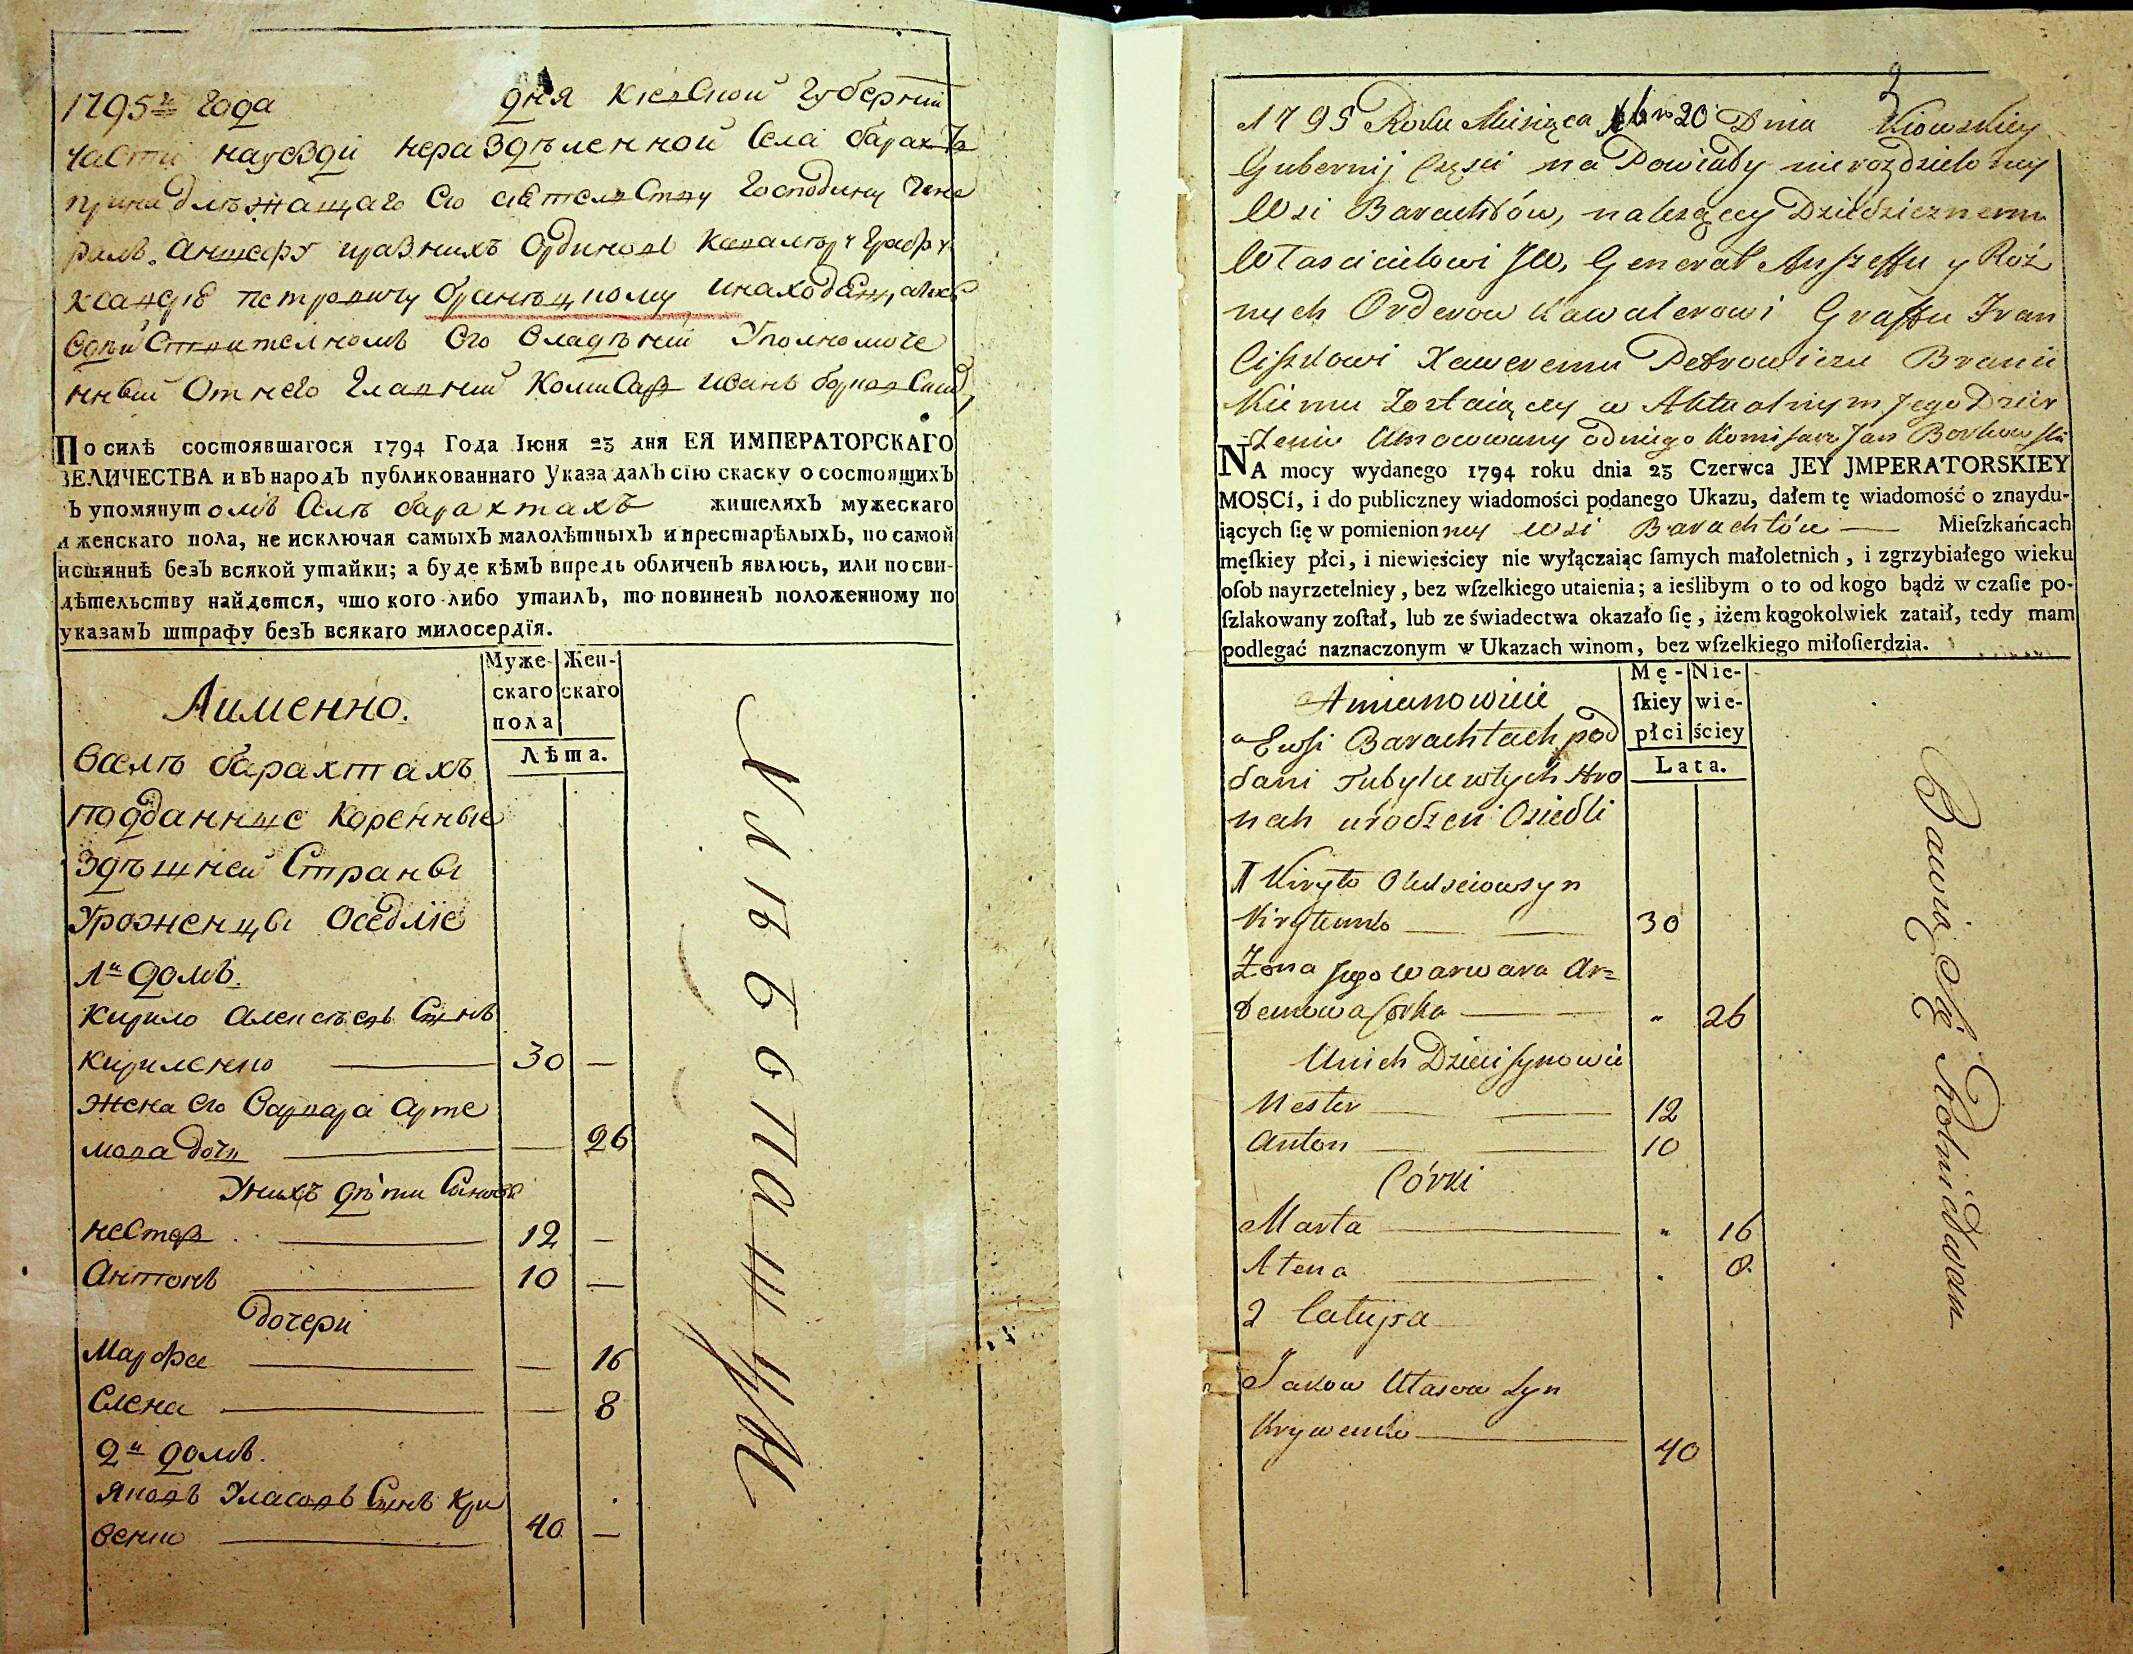 1795 года дня Кіевской Губерніи
части науезди нераздѣленной Села барахтъ
принадлѣжащаго Его сіятелству Господину Гене
ралъ Аншефу ордіновъ Кавалѣру Графу
петровичу браницкому
Его владѣній Уполномоче
нный Отнего Главний Комисаръ Иванъ
По силѣ состоявшагося 1794 Года Іюня 23 дня ЕЯ ИМПЕРАТОРСКАГО
ВЕЛИЧЕСТВА и въ народъ публикованнаго Указа далъ сію скаску о состоящихъ
ъ упомянутомъ Селѣ барахтахъ жителяхъ мужескаго
и женскаго пола, не исключая самыхъ малолѣтныхъ и престарѣлыхъ, по самой
истиннѣ безъ всякой утайки; а буде кѣмъ впредь обличенъ явлюсь, или по сви-
дѣтельству найдется, что кого либо утаилъ, то повиненъ положенному по
указамъ штрафу безъ всякаго милосердїя.
Муже- Жен-
скаго скаго
пола
Лѣта.
Аименно.
Вселѣ барахтахъ
подданние Коренные
Здѣшней Страны
Уроженцы Оседліе
1й домъ.
Кирило Алексѣевъ Синъ
Кириленко 30 —
Жена его Варвара Арте
мова дочь — 26
Унихъ дѣти Синове
Нестор 12 —
Антонъ 10 —
дочери
Марфа — 16
Елена — 8
2й домъ.
Яковъ Уласовъ Синъ Кри
венко 40 —
Хлѣбопашцы
2
1795 Roku Miesiąca 20 Dnia Kiowskiey
Gubernij Części na Powiaty nierozdzieloney
Wsi Barachtów, należącey Dziedzicznemu
Włascicielowi JW, Generał Anszeffu y Róż
nych Orderow Kawalerowi Graffu Fran
Ciszkowi Xaweremu Petrowiczu Branic
kiemu Zostaiącey w Aktualnym Jego Dzier
żeniu Umocowany od niego Komisarz Jan Borkowski
NA mocy wydanego 1794 roku dnia 23 Czerwca JEY JMPERATORSKIEY
MOŚCI, i do publiczney wiadomości podanego Ukazu, dałem tę wiadomość o znaydu-
iących ſię w pomienionney wsi Barachtów — Mieſzkańcach
męſkiey płci, i niewieściey nie wyłączaiąc ſamych małoletnich, i zgrzybiałego wieku
oſob nayrzetelniey, bez wſzelkiego utaienia; a ieślibym o to od kogo bądź w czaſie po-
ſzlakowany zoſtał, lub ze świadectwa okazało ſię, iżem kogokolwiek zataił, tedy mam
podlegać naznaczonym w Ukazach winom, bez wſzelkiego miłoſierdzia.
Mę- Nie-
ſkiey wie-
płci ściey
Lata.
Amianowicie
Barachtach pod
dani Tubylcu wtych Stro
nach urodzeni Osiedli
1 Kiryło Olexeiow syn
Kirylenko 30
Żona Jego Warwara Ar=
temowa Córka " 26
U nich Dzieci synowie
Nester 12
Anton 10
Córki
Marta " 16
Alena 8
2 Catupa
Jakow Ułasow Syn
Krywenko 40
Bawią Się Rolnictwem